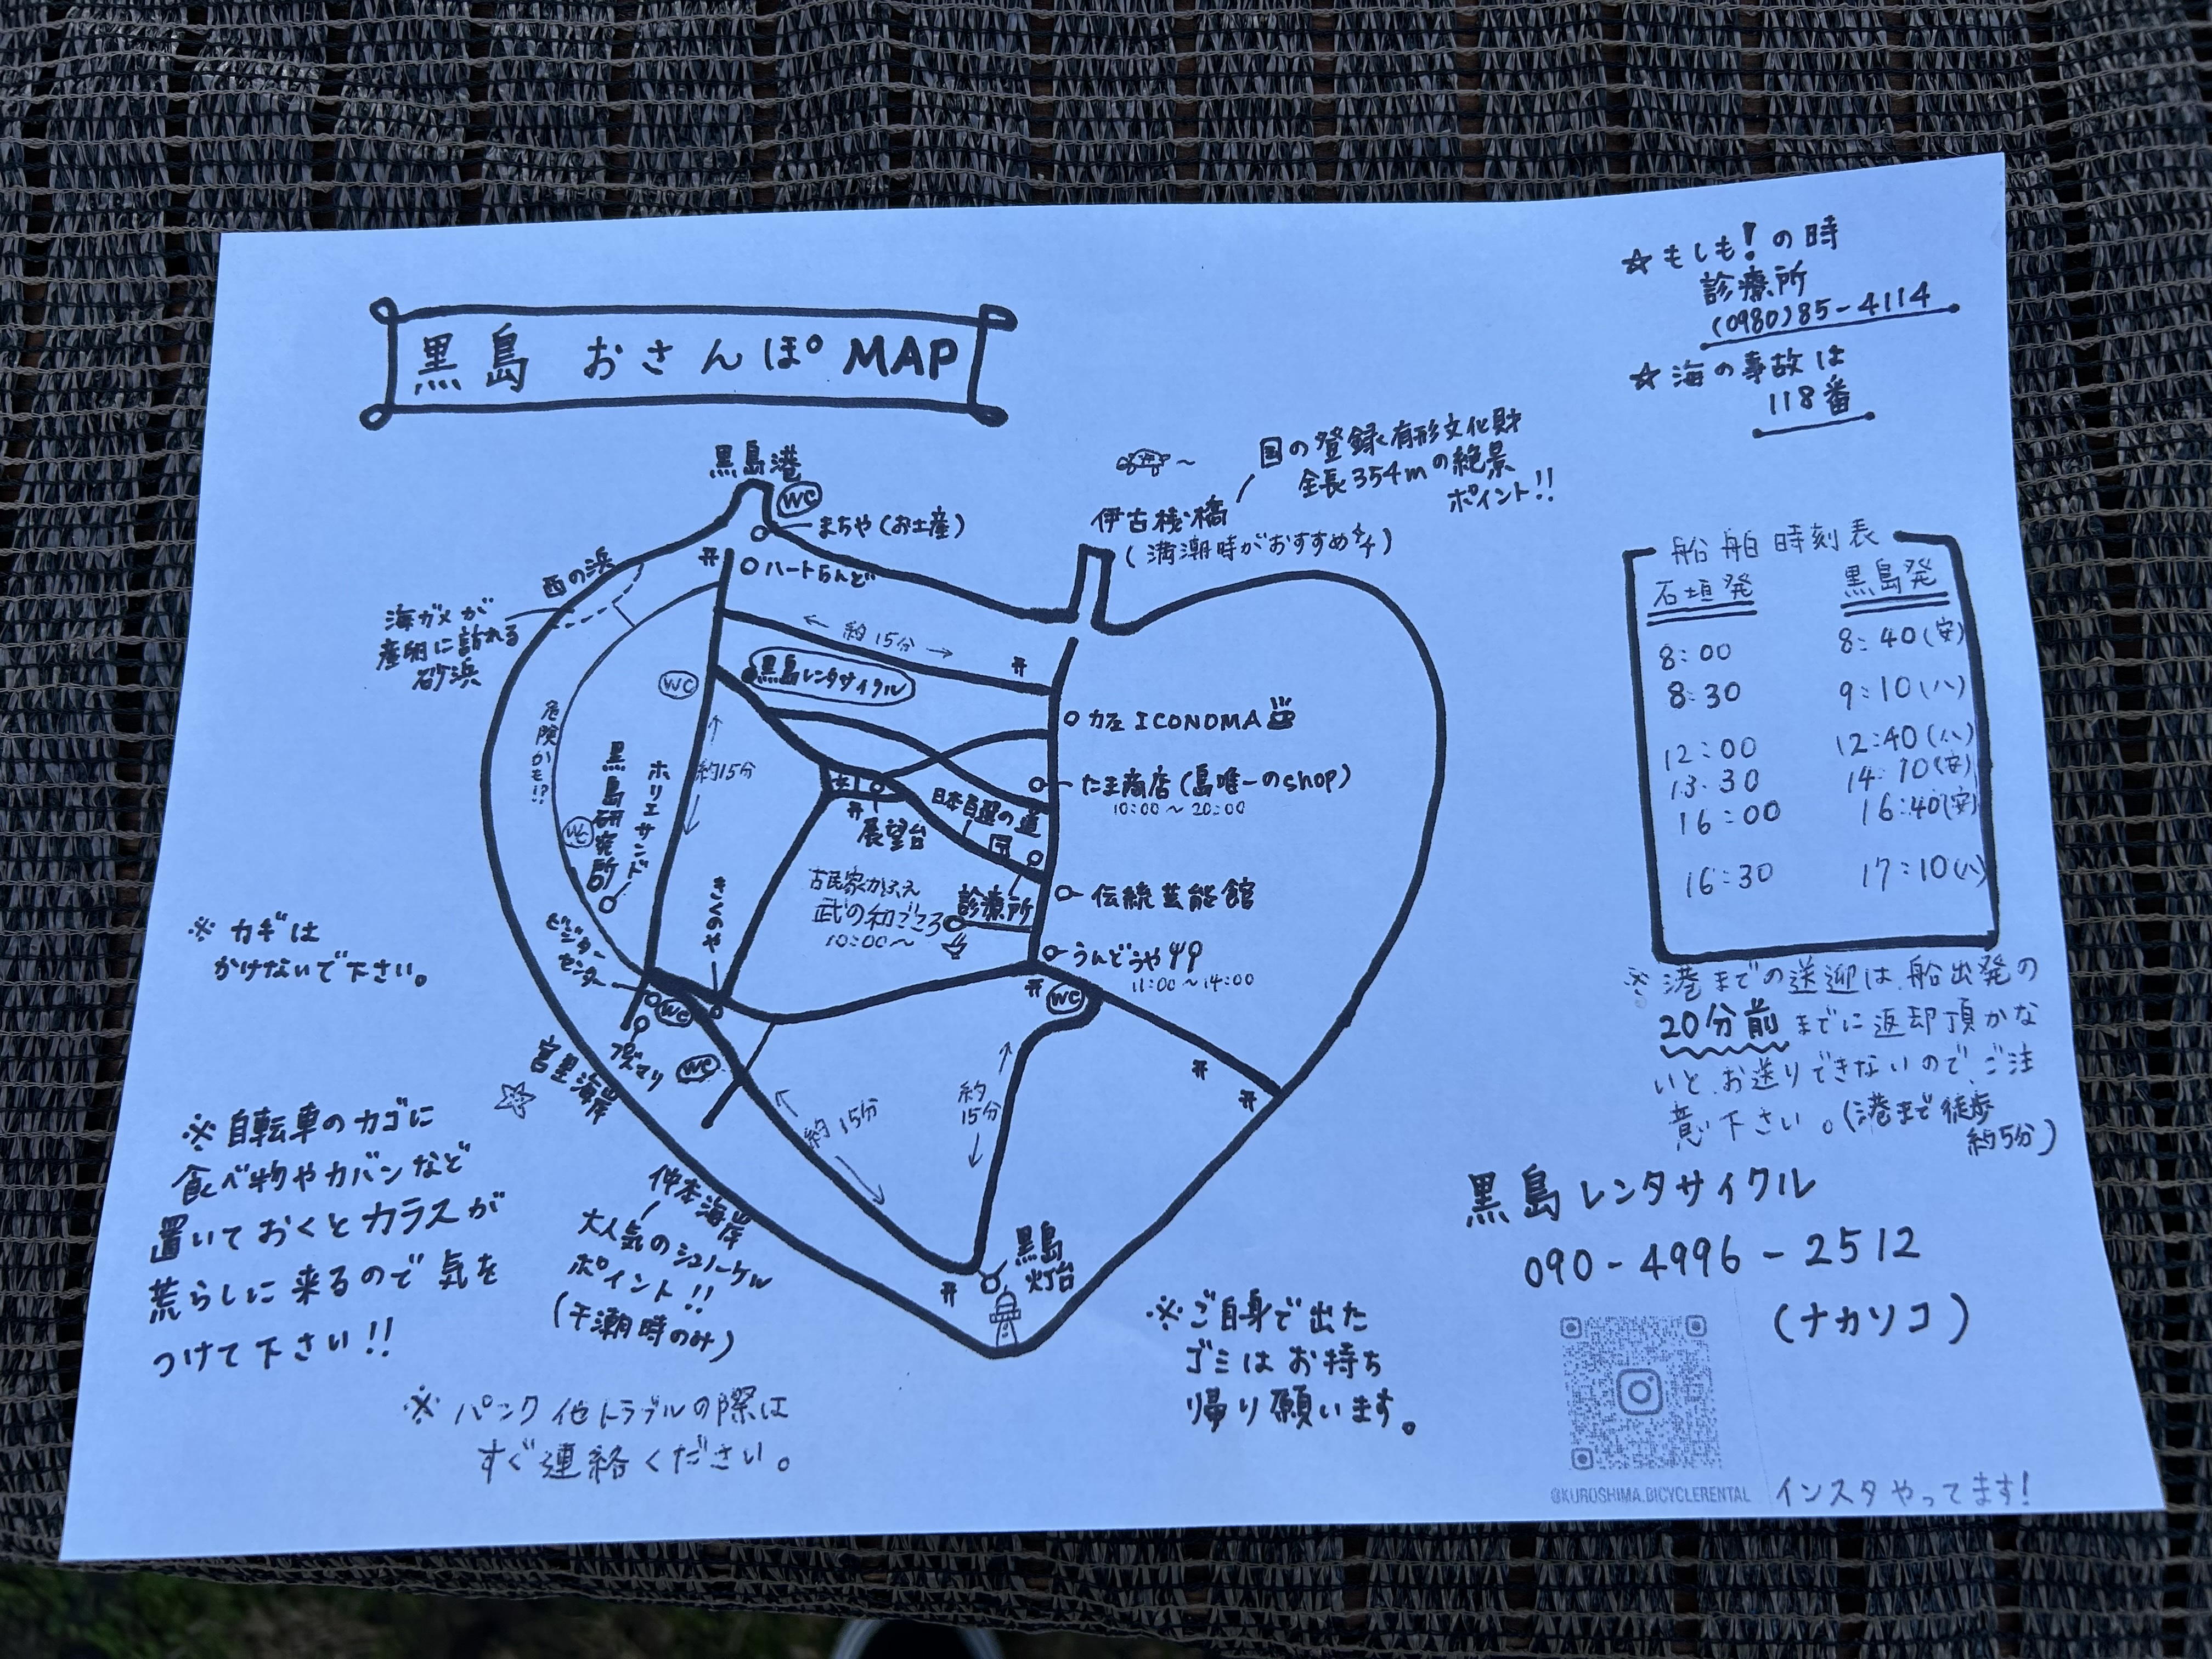 黒島 おさんぽ MAP
☆もしも!の時
診療所
(0980)85-4114
☆海の事故は
118番
黒島港
WC
まちや(お土産)
ハートらんど
国の登録有形文化財
全長354mの絶景
ポイント!!
伊古桟橋
(満潮時がおすすめ)
西の浜
海ガメが
産卵に訪れる
砂浜
← 約15分 →
黒島レンタサイクル
WC
危険かも!?
カフェ ICONOMA
約15分
黒島研究所
ホリエサンド
WC
たま商店(島唯一のshop)
10:00~20:00
日本百選の道
展望台
古民家かふぇ
武の和ごころ
10:00~
診療所
伝統芸能館
うんどうや
11:00~14:00
WC
きくのや
ビジター
センター
WC
プズマリ
WC
宮里海岸
約15分
約
15分
仲本海岸
大人気のシュノーケル
ポイント!!
(干潮時のみ)
黒島
灯台
船舶時刻表
石垣発 黒島発
8:00 8:40(安)
8:30 9:10(ハ)
12:00 12:40(ハ)
13:30 14:10(安)
16:00 16:40(安)
16:30 17:10(ハ)
※港までの送迎は、船出発の
20分前までに返却頂かな
いと、お送りできないので、ご注
意下さい。(港まで徒歩
約5分)
※カギは
かけないで下さい。
※自転車のカゴに
食べ物やカバンなど
置いておくとカラスが
荒らしに来るので気を
つけて下さい!!
※パンク他トラブルの際は
すぐ連絡ください。
※ご自身で出た
ゴミはお持ち
帰り願います。
黒島レンタサイクル
090-4996-2512
(ナカソコ)
@KUROSHIMA.BICYCLERENTAL
インスタやってます!